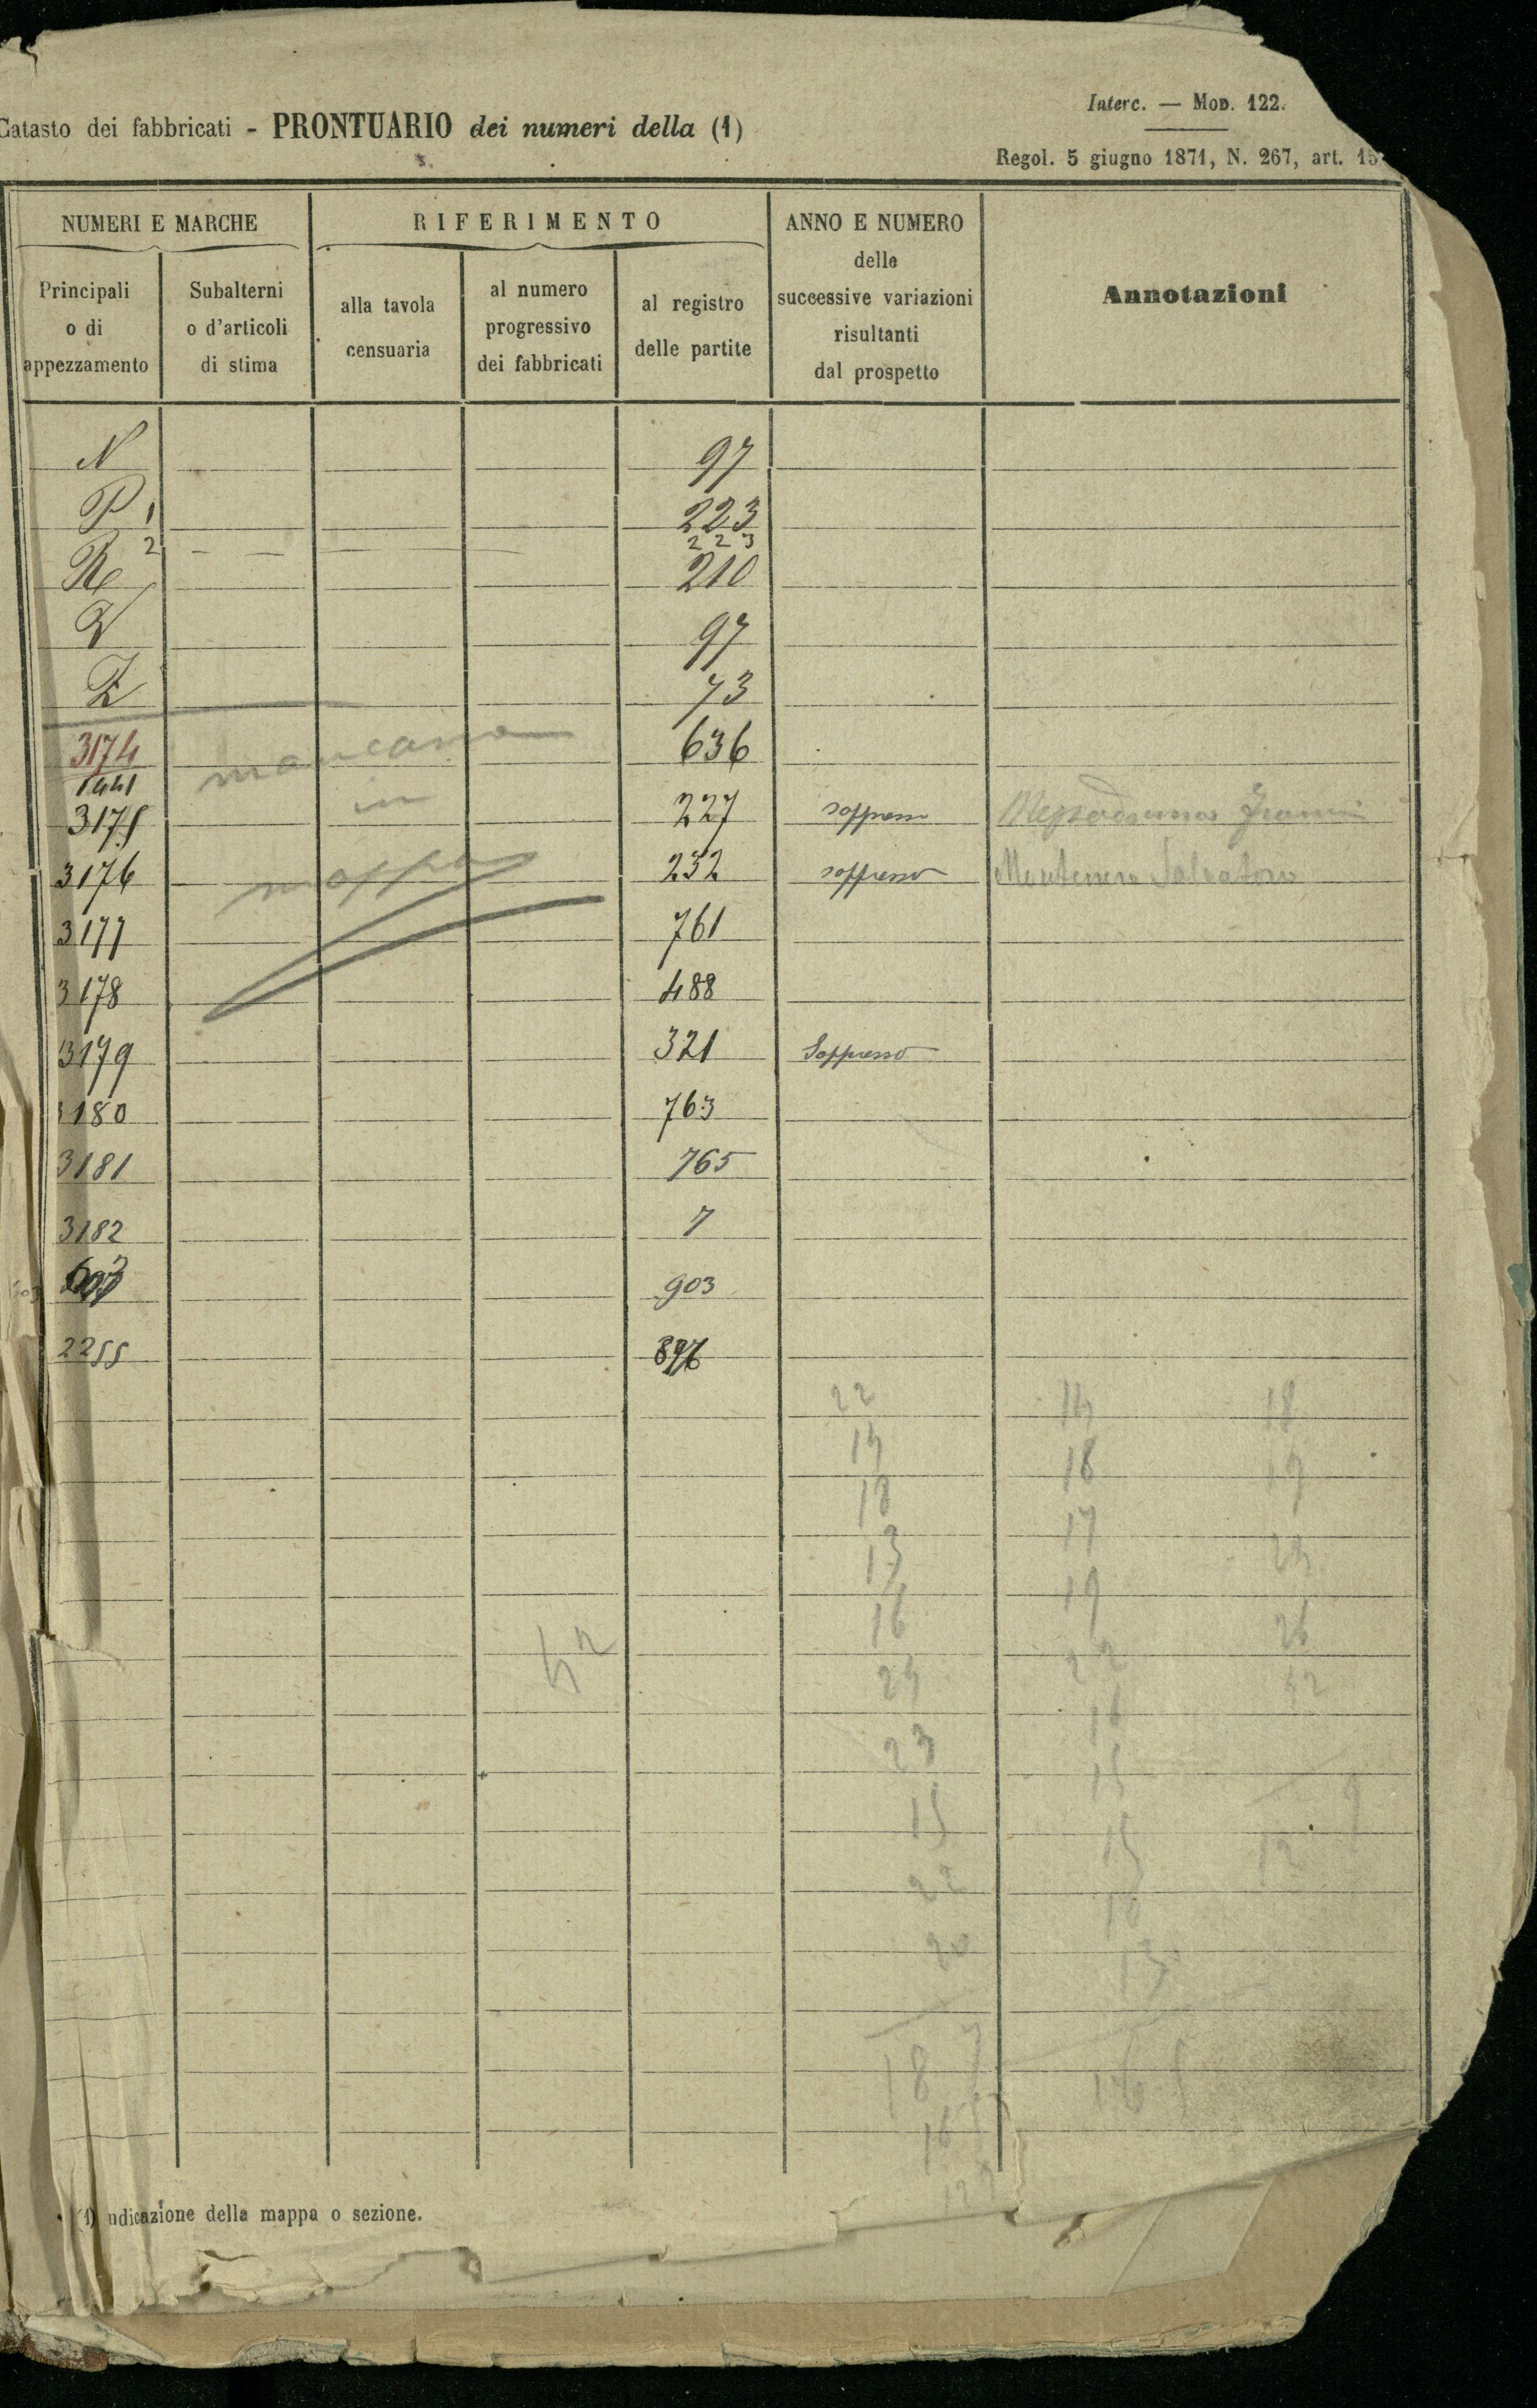 Interc. — Mod. 122.
Catasto dei fabbricati - PRONTUARIO dei numeri della (1)
Regol. 5 giugno 1871, N. 267, art. 15
NUMERI E MARCHE
Principali o di appezzamento
Subalterni o d'articoli di stima
RIFERIMENTO
alla tavola censuaria
al numero progressivo dei fabbricati
al registro delle partite
ANNO E NUMERO delle successive variazioni risultanti dal prospetto
Annotazioni
N 97
P 1 223
2 223
R 210
97
Z 73
3174 636
1441
3175 227 soppresso
3176 232 soppresso Montenero Salvatore
mancano
in
mappa
3177 761
3178 488
3179 321 Soppresso
3180 763
3181 765
3182 7
903
2255
22 14 18
14 18 19
18 17
13 19 24
16 22 26
24 16
23 15 9
15 15 12
22
20 13
18 7
16
42
(1) ndicazione della mappa o sezione.